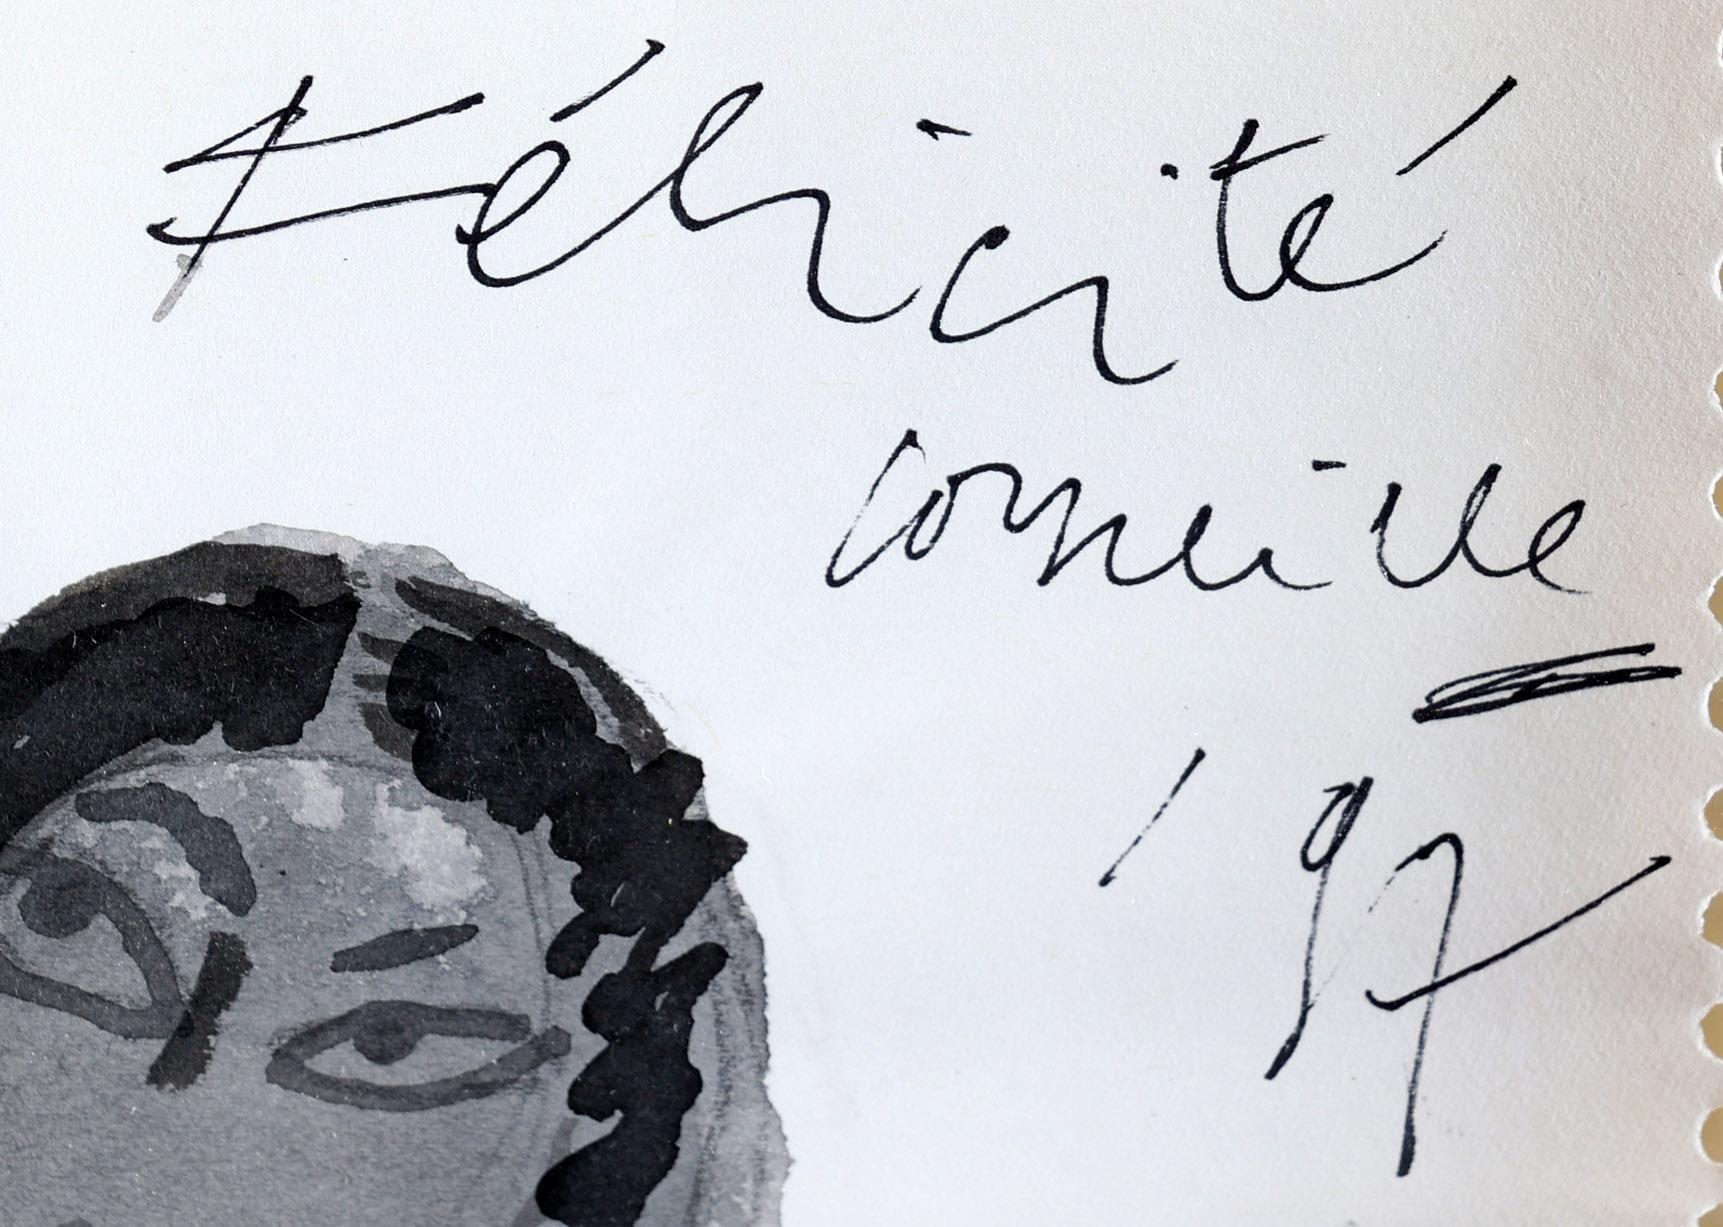 Félicité
corneille
'97